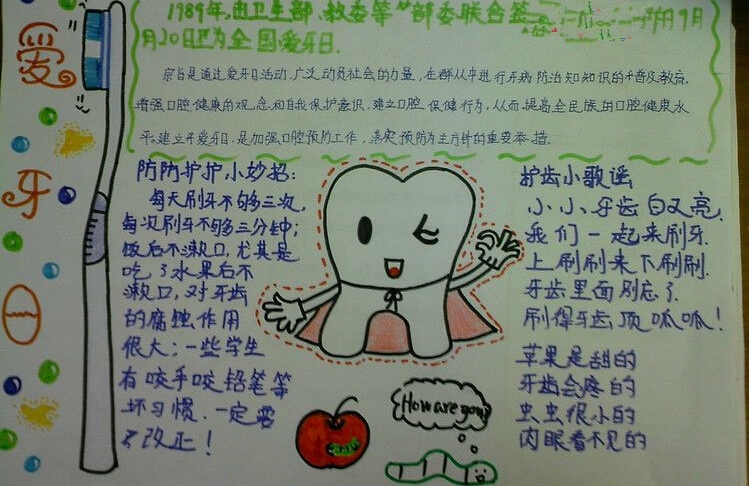 爱牙日
1989年,由卫生部、教委等 部委联合签
月20日为全国爱牙日.
宗旨是通过爱牙日活动.广泛动员社会的力量,在群从中进行牙病防治知知识的普及教育.
增强口腔健康的观念和自我保护意识.建立口腔保健行为,从而提高全民族的口腔健康水
平.建立爱牙日.是加强口腔预防工作,落实预防为主方针的重要举措.
防防护护小妙招:
每天刷牙不够三次,
每次刷牙不够三分钟;
饭后不漱口,尤其是
吃了水果后不
漱口,对牙齿
的腐蚀作用
很大;一些学生
有咬手咬铅笔等
坏习惯.一定要
改正!
How are you?
护齿小歌谣
小小牙齿白又亮.
我们一起来刷牙.
上刷刷来下刷刷.
牙齿里面别忘了.
刷得牙齿顶呱呱!
苹果是甜的
牙齿会疼的
虫虫很小的
肉眼看不见的